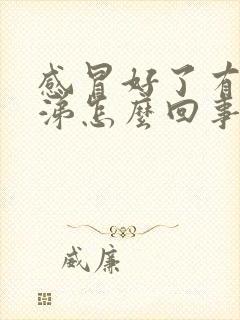 感冒好了有
涕怎麼回事
威廉